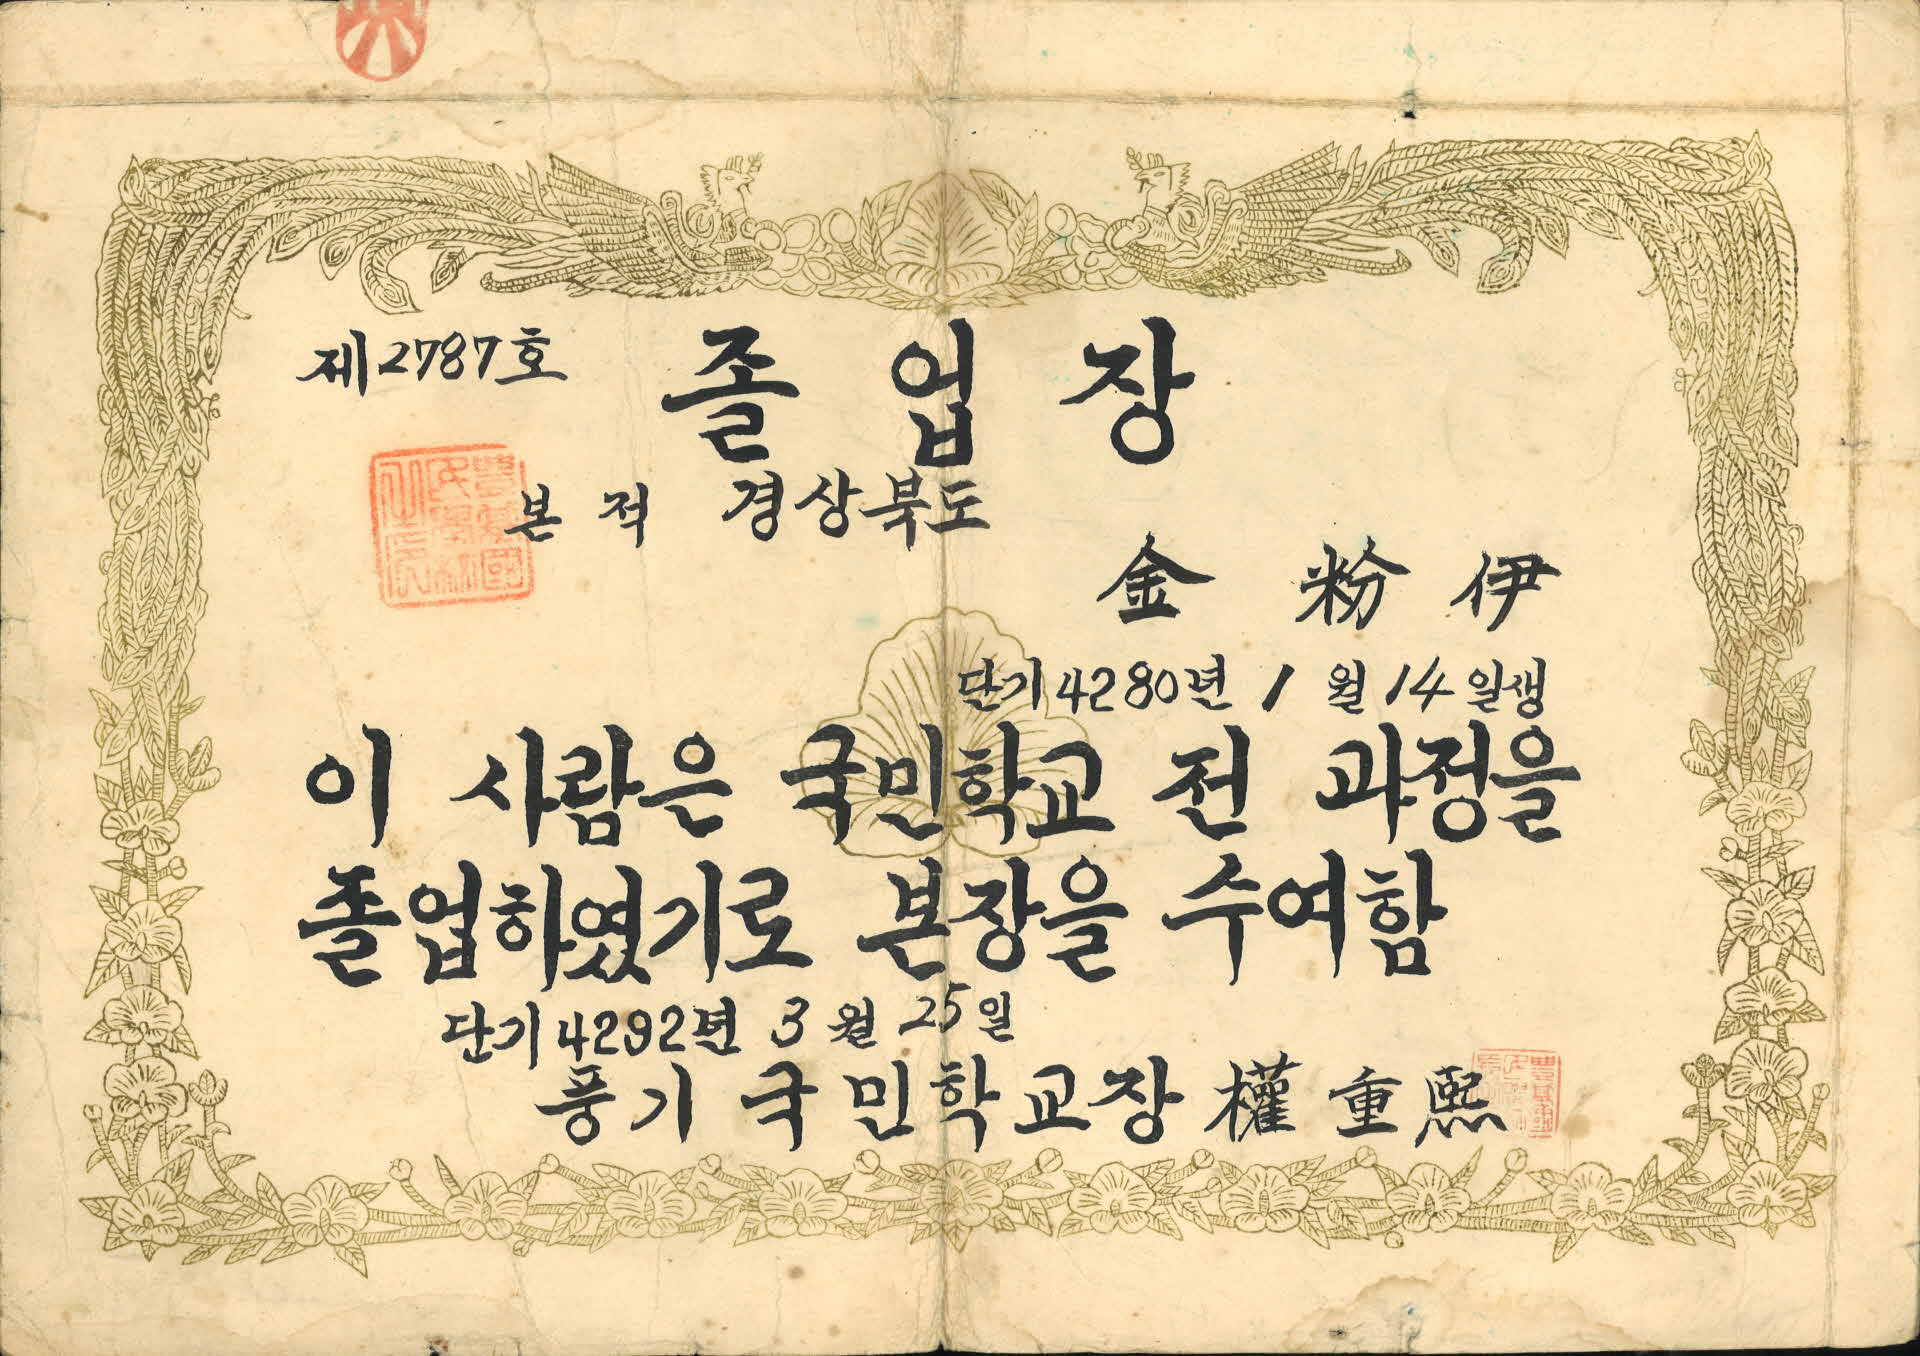 제2787호
졸업장
본적 경상북도
金粉伊
단기4280년 1월 14일생
이 사람은 국민학교 전 과정을
졸업하였기로 본장을 수여함
단기4292년 3월 25일
풍기국민학교장 權重熙